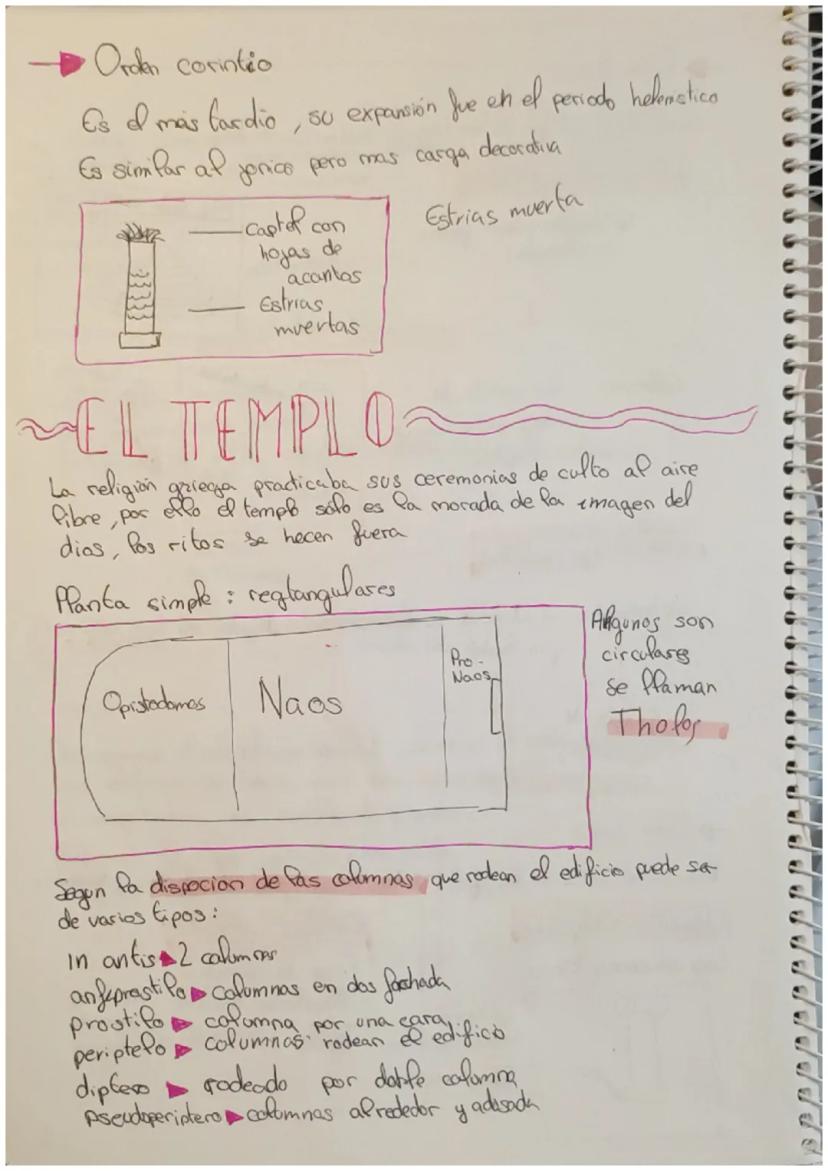 Orden corintio
Es el más tardio, su expansión fue en el periodo helenistico
Es similar al jonico pero mas carga decorativa
Captel con
hojas de
acantos
Estrias
muertas
Estrias muerta
EL TEMPLO
La religión griega practicaba sus ceremonias de culto al aire
libre, por ello el templo sólo es la morada de la imagen del
dios, los ritos se hacen fuera
Planta simple : regtangulares
Opistodomos
Naos
Pro-
Naos
Algunos son
circulares
se llaman
Tholos
Segun la dispocion de las columnas, que rodean el edificio puede ser
de varios tipos:
in antis 2 columnas
anfiprostilo columnas en dos fachada
prostilo columna por una cara
periptelo columnas rodean el edificio
diptero rodeado por doble columna
pseudoperiptero columnas alrededor y adosada